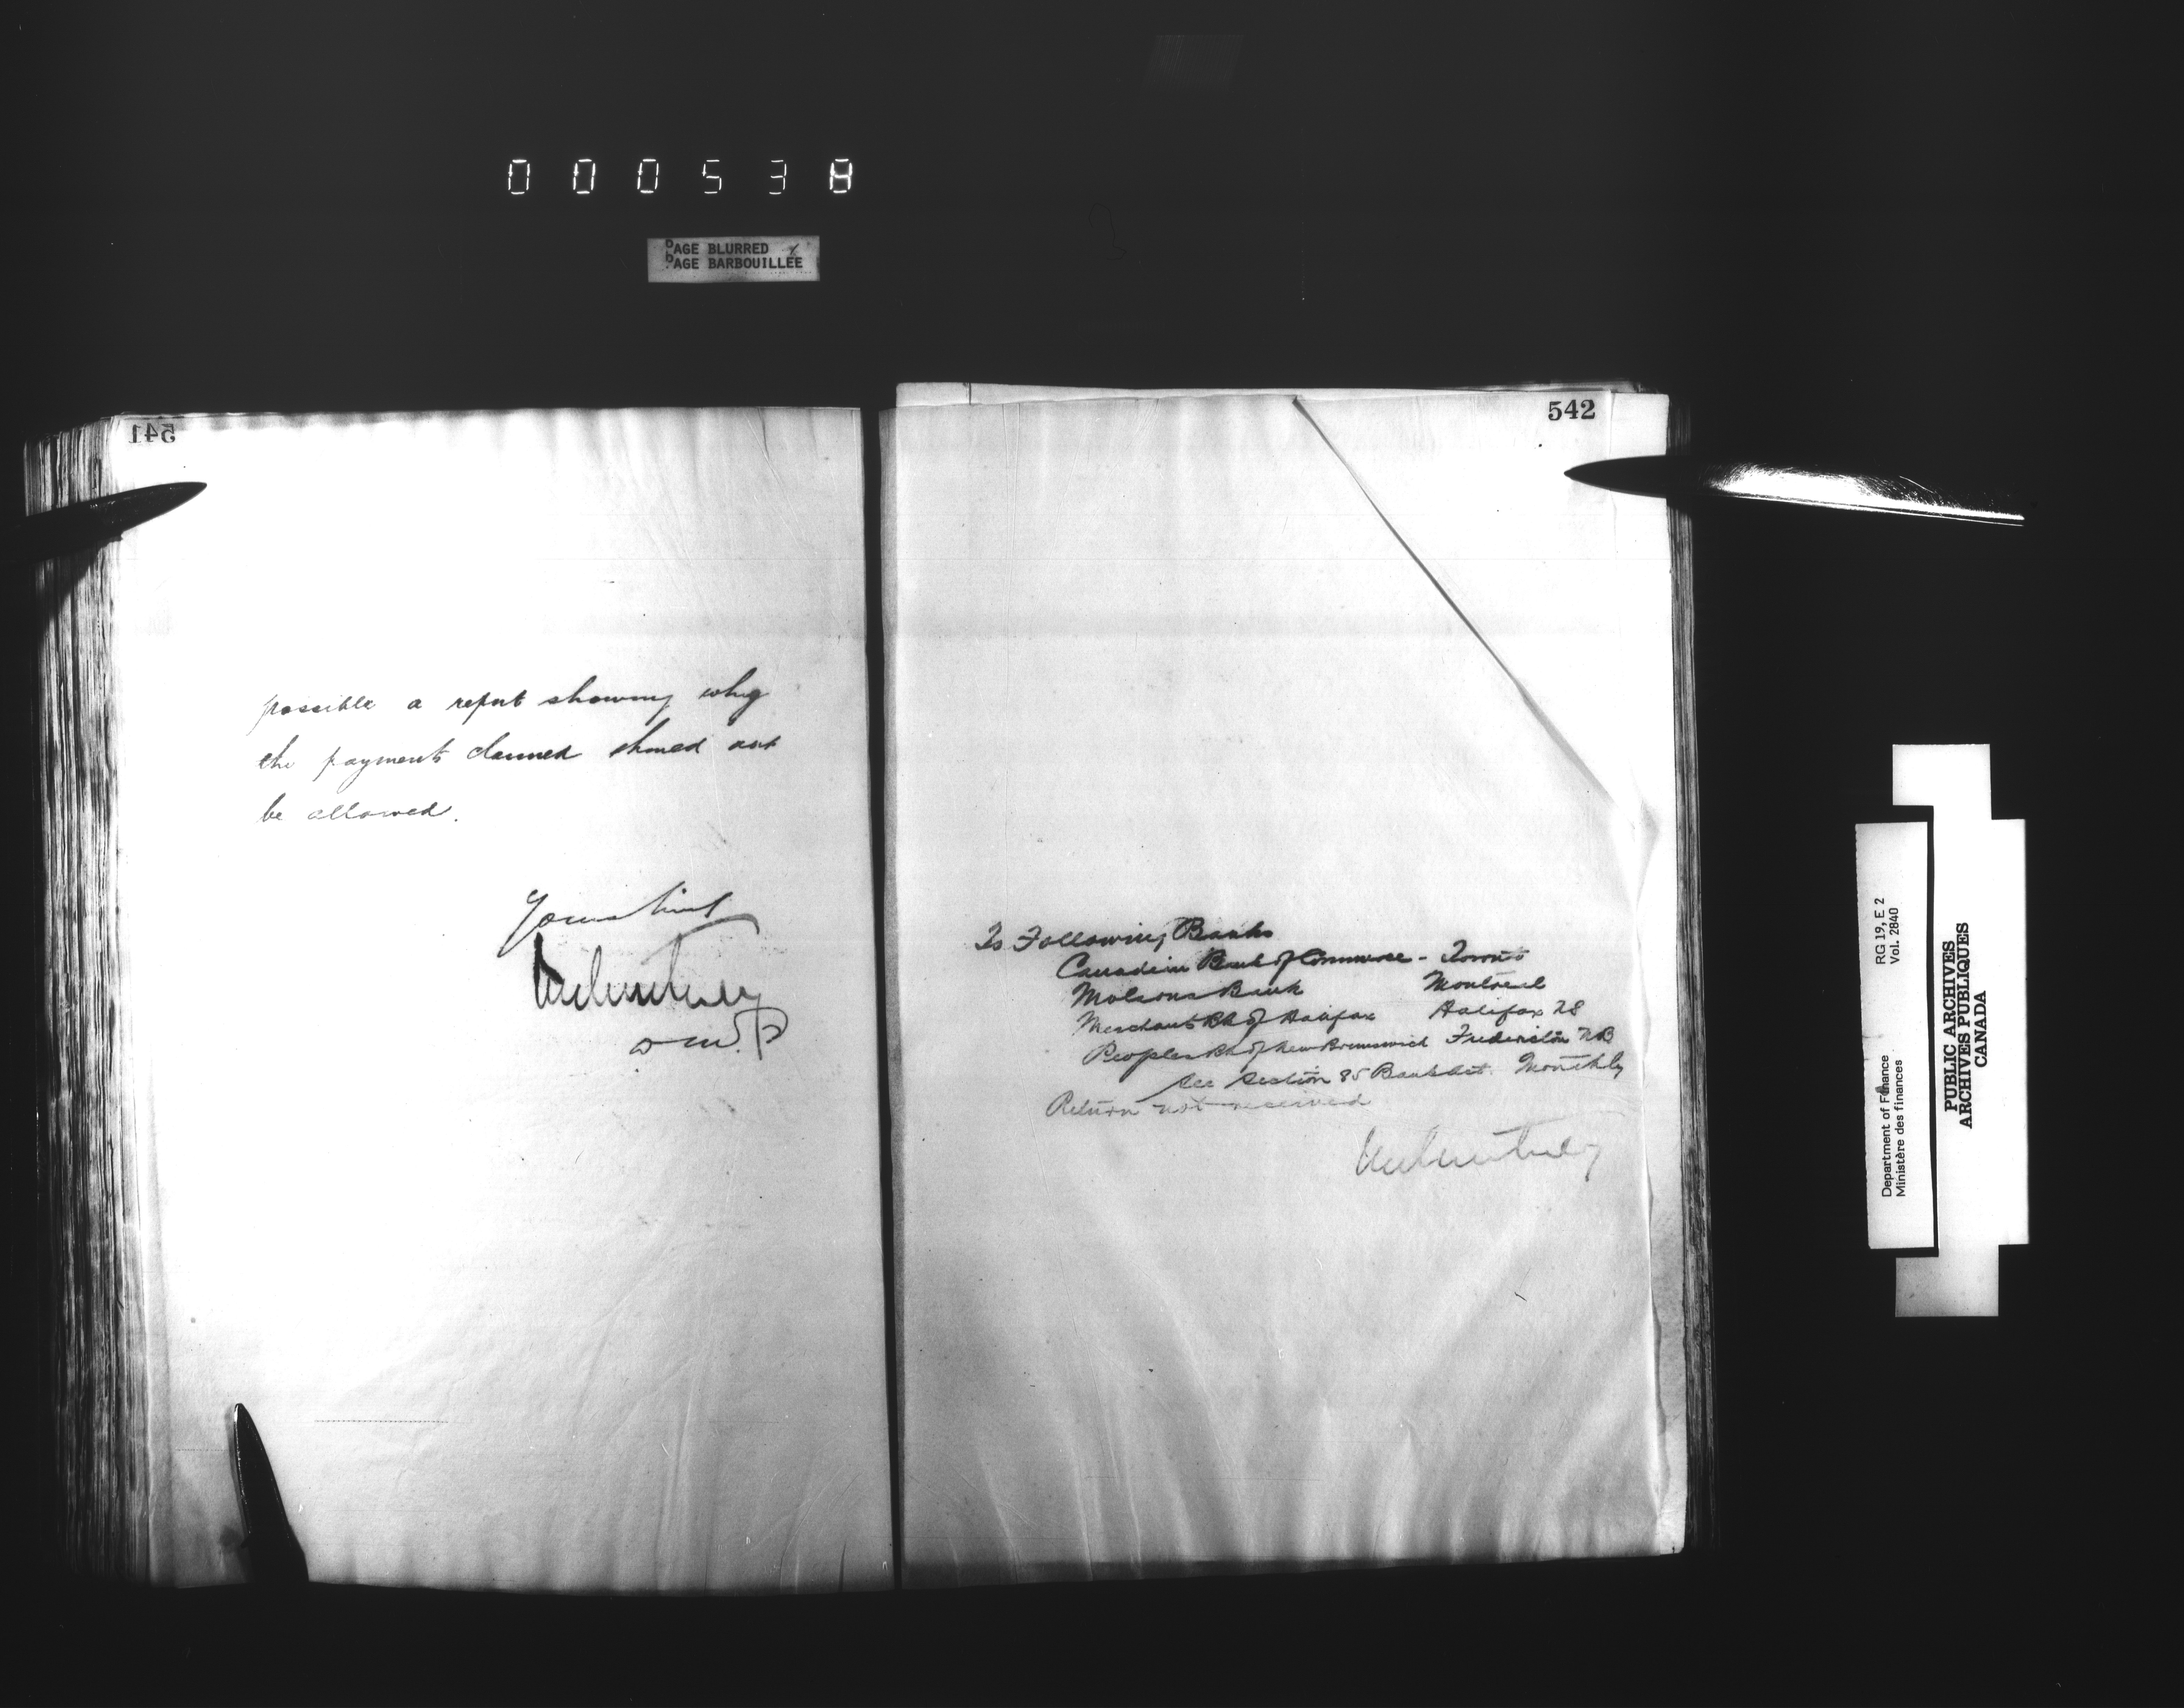 00053
PAGE BLURRED
PAGE BARBOUILLÉE
541
possible a report showing why
the payments claimed should not
be allowed.
Yours truly
D M F
542
To Following Banks
Canadian Bank of Commerce - Toronto
Molsons Bank Montreal
Merchants Bk of Halifax Halifax NS
Peoples Bk of New Brunswick Fredericton NB
See Section 85 Bank Act. Monthly
Return not received
RG 19, E 2
Vol. 2840
Department of Finance
Ministère des finances
PUBLIC ARCHIVES
ARCHIVES PUBLIQUES
CANADA